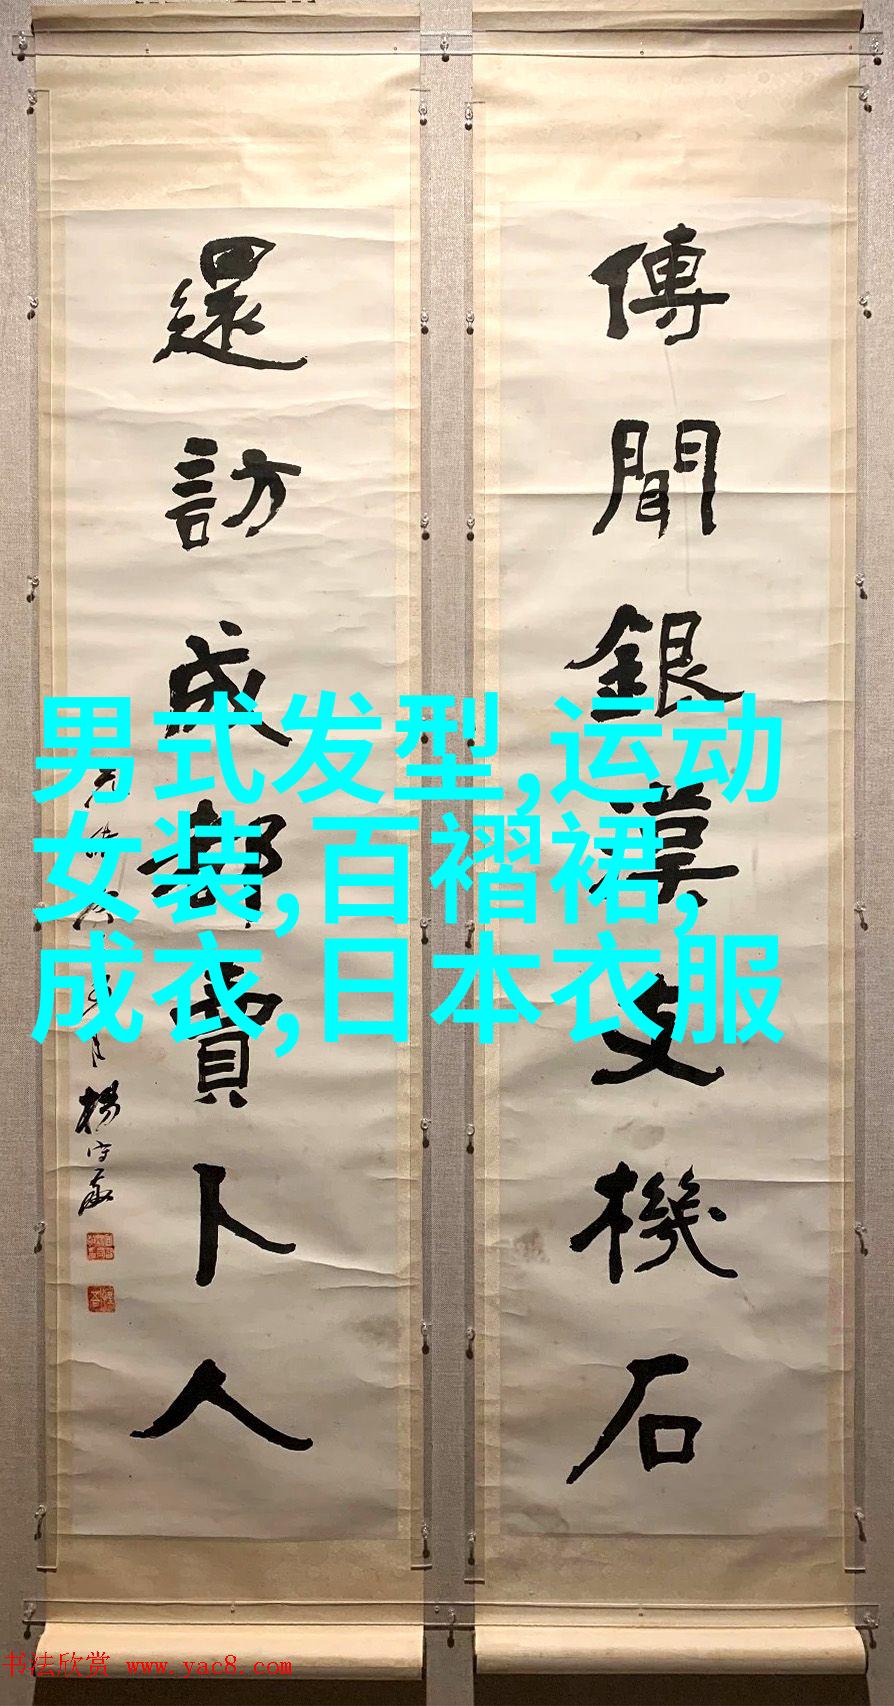 傳聞銀漢支機石
還訪成都賣卜人
楊守敬
男式发型,运动
女装,百褶裙,
成衣,日本衣服
书法欣赏 www.yac8.com